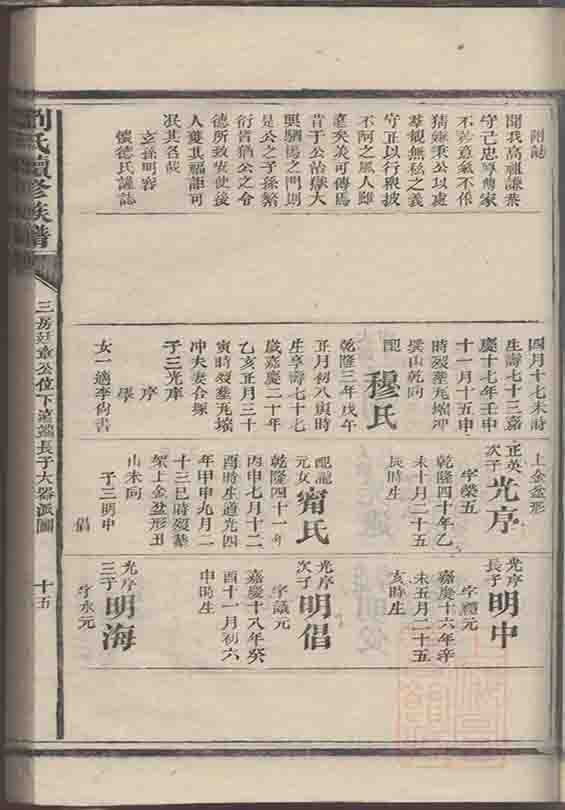 附誌
聞我高祖謙恭
守己忠厚傳家
不矜意氣不作
猜嫌秉公以處
羣觀無私之義
守正以行衆披
不阿之風人雖
真矣美可傳焉
昔于公治獄大
興駟馬之門則
是公之子孫繁
衍皆猶公之令
德所致安使後
人襲其福詎可
泯其名哉
玄孫明容
懷德氏謹誌
四月十七未時
生壽七十三嘉
慶十七年壬申
十一月十五申
時歿葬
乾向
配
穆氏
乾隆三年戊午
正月初八寅時
生享壽七十七
歲嘉慶二十年
乙亥正月三十
寅時歿葬
冲夫妻合塚
子三光庠
序
學
女一適李尙書
上金盆形
正英
次子
光序
字榮五
乾隆四十年乙
未十月二十五
辰時生
配龍
元女
甯氏
乾隆四十一年
丙申七月十二
酉時生道光四
年甲申九月二
十三巳時歿葬
架上金盆形丑
山未向
子三明中
倡
光序
長子
明中
字禮元
嘉慶十六年辛
未五月二十五
亥時生
光序
次子
明倡
字議元
嘉慶十八年癸
酉十一月初六
申時生
光序
三子
明海
字永元
劉氏續修族譜
三房廷章公位下遠端長子大器派圖
十五